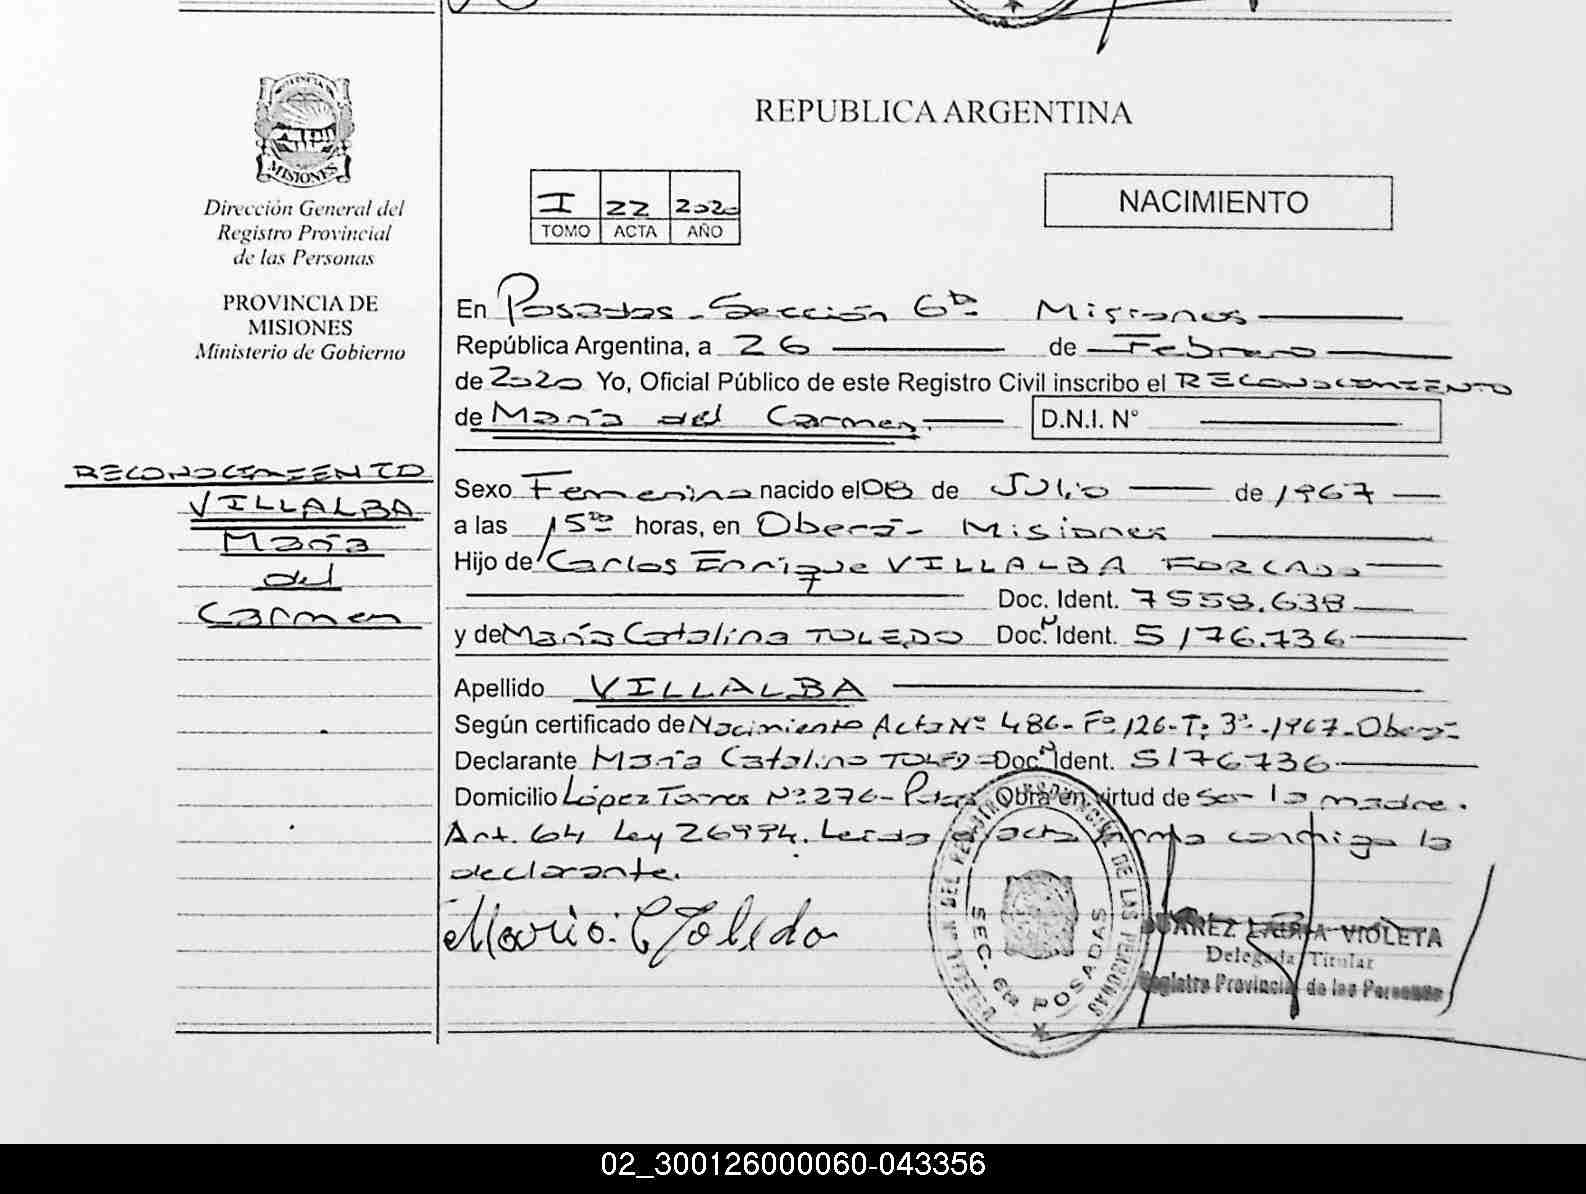 PROVINCIA DE
MISIONES
Dirección General del
Registro Provincial
de las Personas
PROVINCIA DE
MISIONES
Ministerio de Gobierno
RECONOCIMIENTO
VILLALBA
María
del
Carmen
REPUBLICA ARGENTINA
I 22 2020
TOMO ACTA AÑO
NACIMIENTO
En Posadas - Sección 6ta Misiones
República Argentina, a 26 de Febrero
de 2020 Yo, Oficial Público de este Registro Civil inscribo el RECONOCIMIENTO
de María del Carmen. D.N.I. N°
Sexo Femenino nacido el 08 de Julio de 1967
a las 15 00 horas, en Oberá - Misiones
Hijo de Carlos Enrique VILLALBA FORCADO
Doc. Ident. 7558.638
y de María Catalina TOLEDO Doc. Ident. 5176.736
Apellido VILLALBA
Según certificado de Nacimiento Acta Nº 486 - Fº 126 - T: 3º - 1967 - Oberá
Declarante María Catalina TOLEDO Doc. Ident. 5176736
Domicilio López Torres Nº 276 - Obra en virtud de ser la madre.
Art. 64 Ley 26994. Leída el acta firma conmigo la
declarante.
Maria C Toledo
SEC. 6ta POSADAS
SUAREZ LAURA VIOLETA
Delegada Titular
Registro Provincial de las Personas
02_300126000060-043356